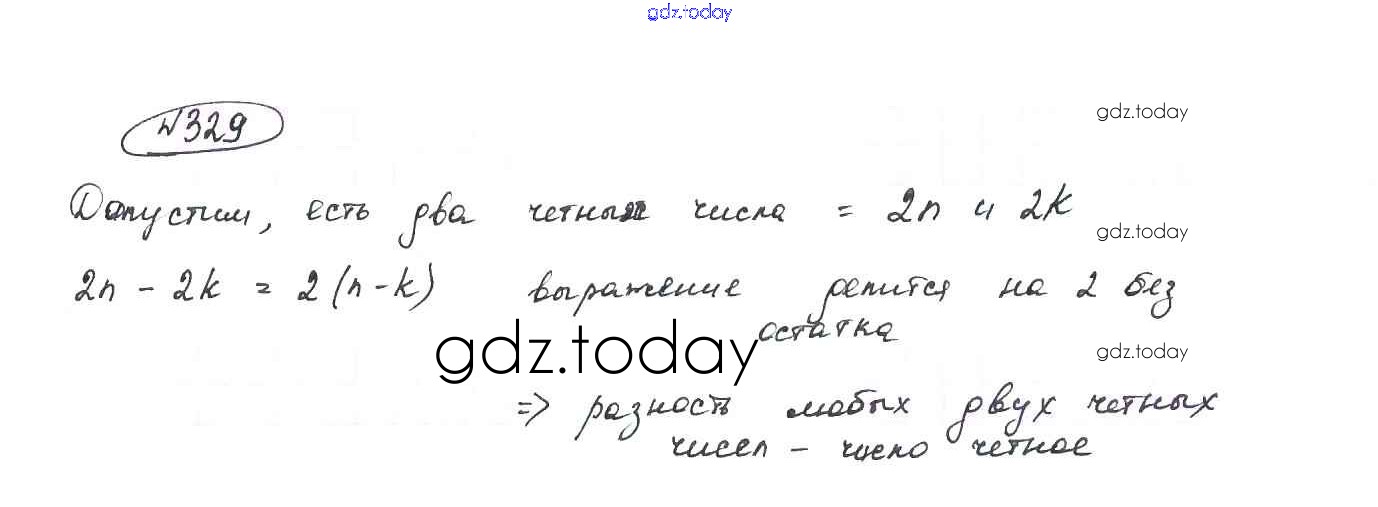 gdz.today
№329
gdz.today
Допустим, есть два четных числа = 2n и 2k
gdz.today
2n - 2k = 2(n-k) выражение делится на 2 без
остатка
gdz.today
gdz.today
=> разность любых двух четных
чисел - число четное